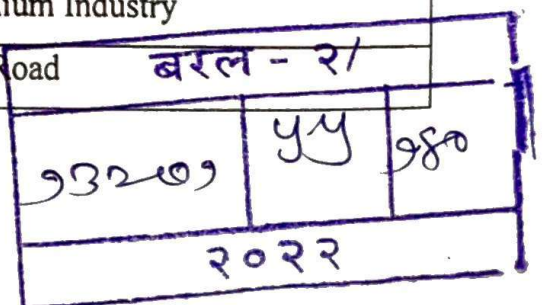 nium Industry
oad बरल - २/
१३२७१ ५५ १४०
२०२२